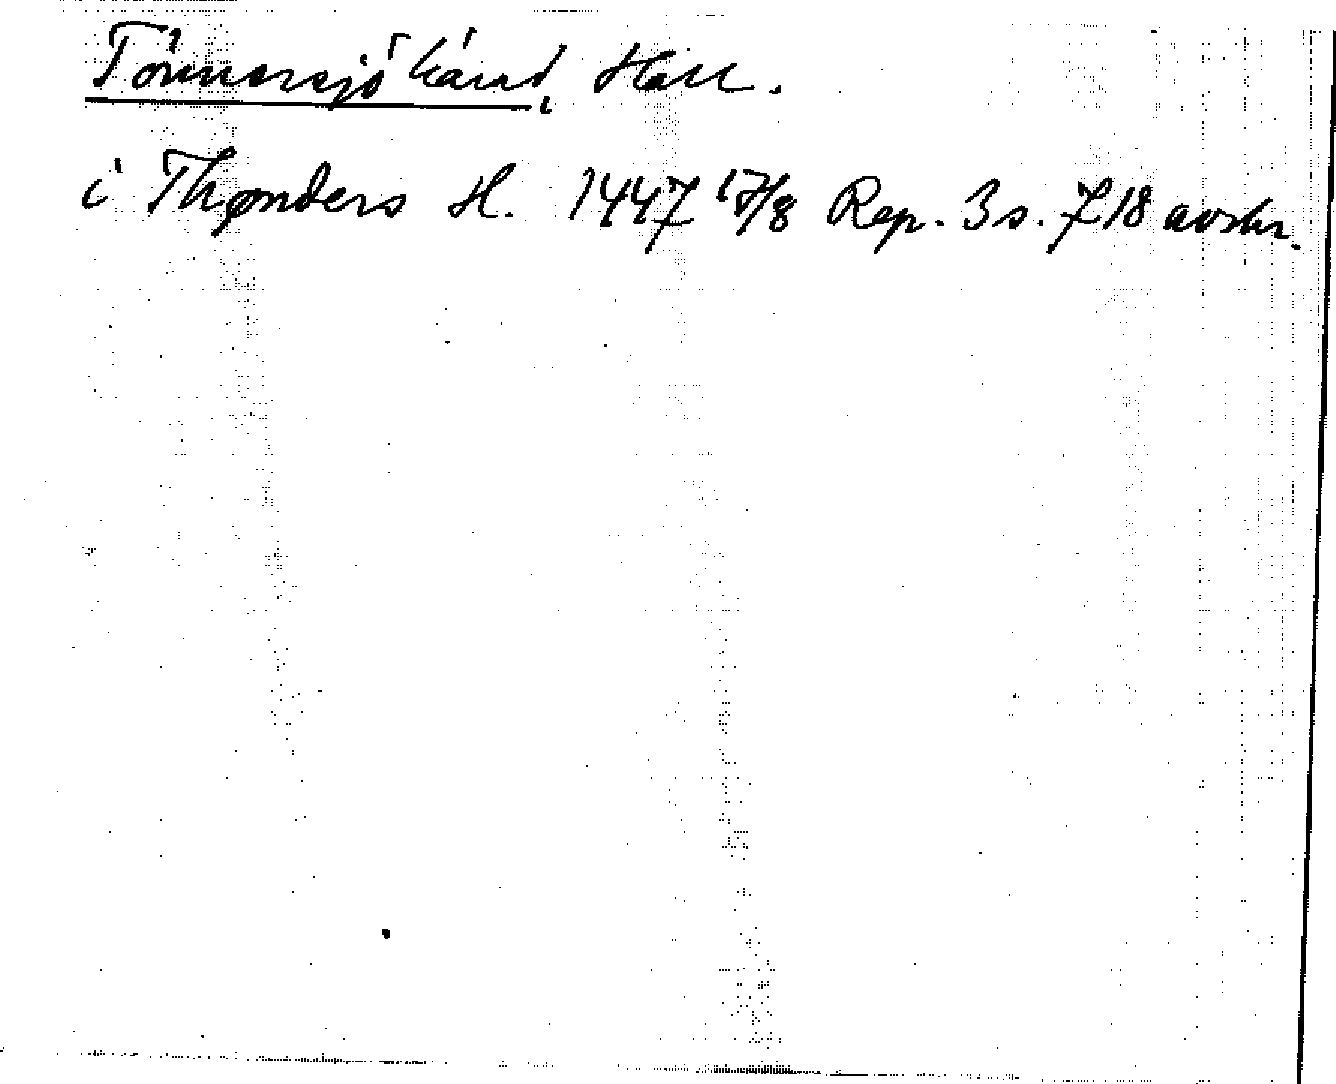 Tönnersjö härad, Hall.
i Thønders H. 1447 17/8 Rep. 3 s. 718 avskr.